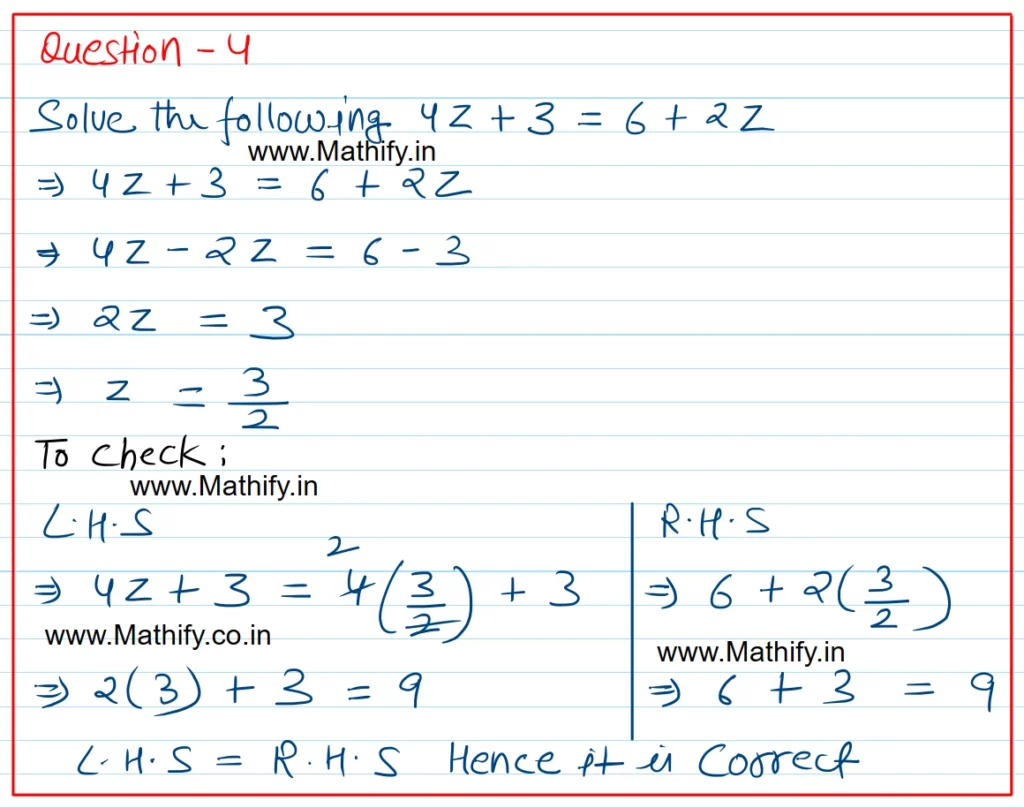 Question - 4
Solve the following 4z + 3 = 6 + 2z
www.Mathify.in
⇒ 4z + 3 = 6 + 2z
⇒ 4z - 2z = 6 - 3
⇒ 2z = 3
⇒ z = 3/2
To check ;
www.Mathify.in
L.H.S
2
⇒ 4z + 3 = 4(3/2) + 3
www.Mathify.co.in
⇒ 2(3) + 3 = 9
R.H.S
⇒ 6 + 2(3/2)
www.Mathify.in
⇒ 6 + 3 = 9
L.H.S = R.H.S Hence it is Correct